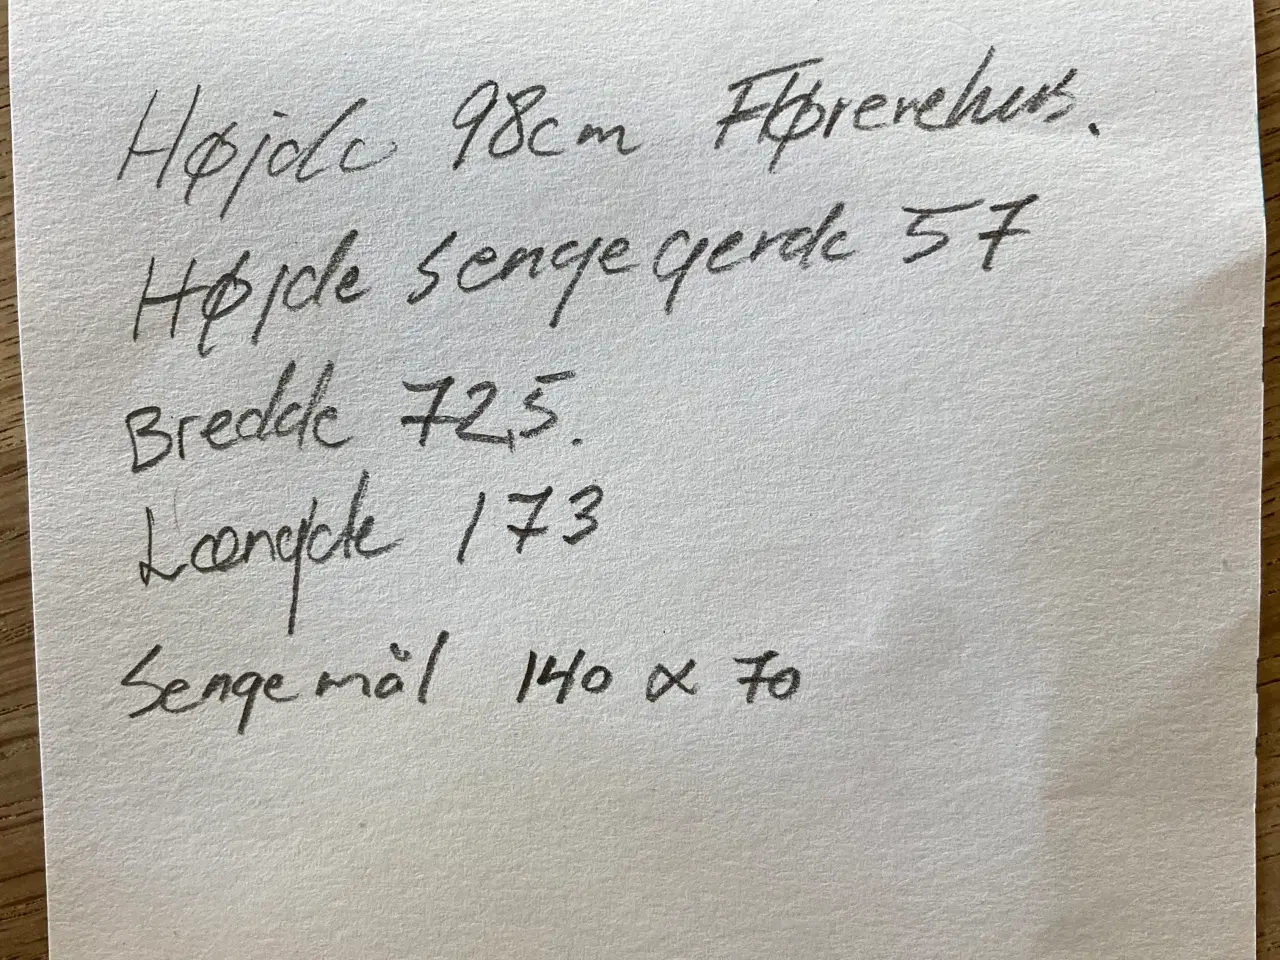 Højde 98cm Førerehus.
Højde sengegerde 57
Bredde 72,5.
Længde 173
Sengemål 140 x 70